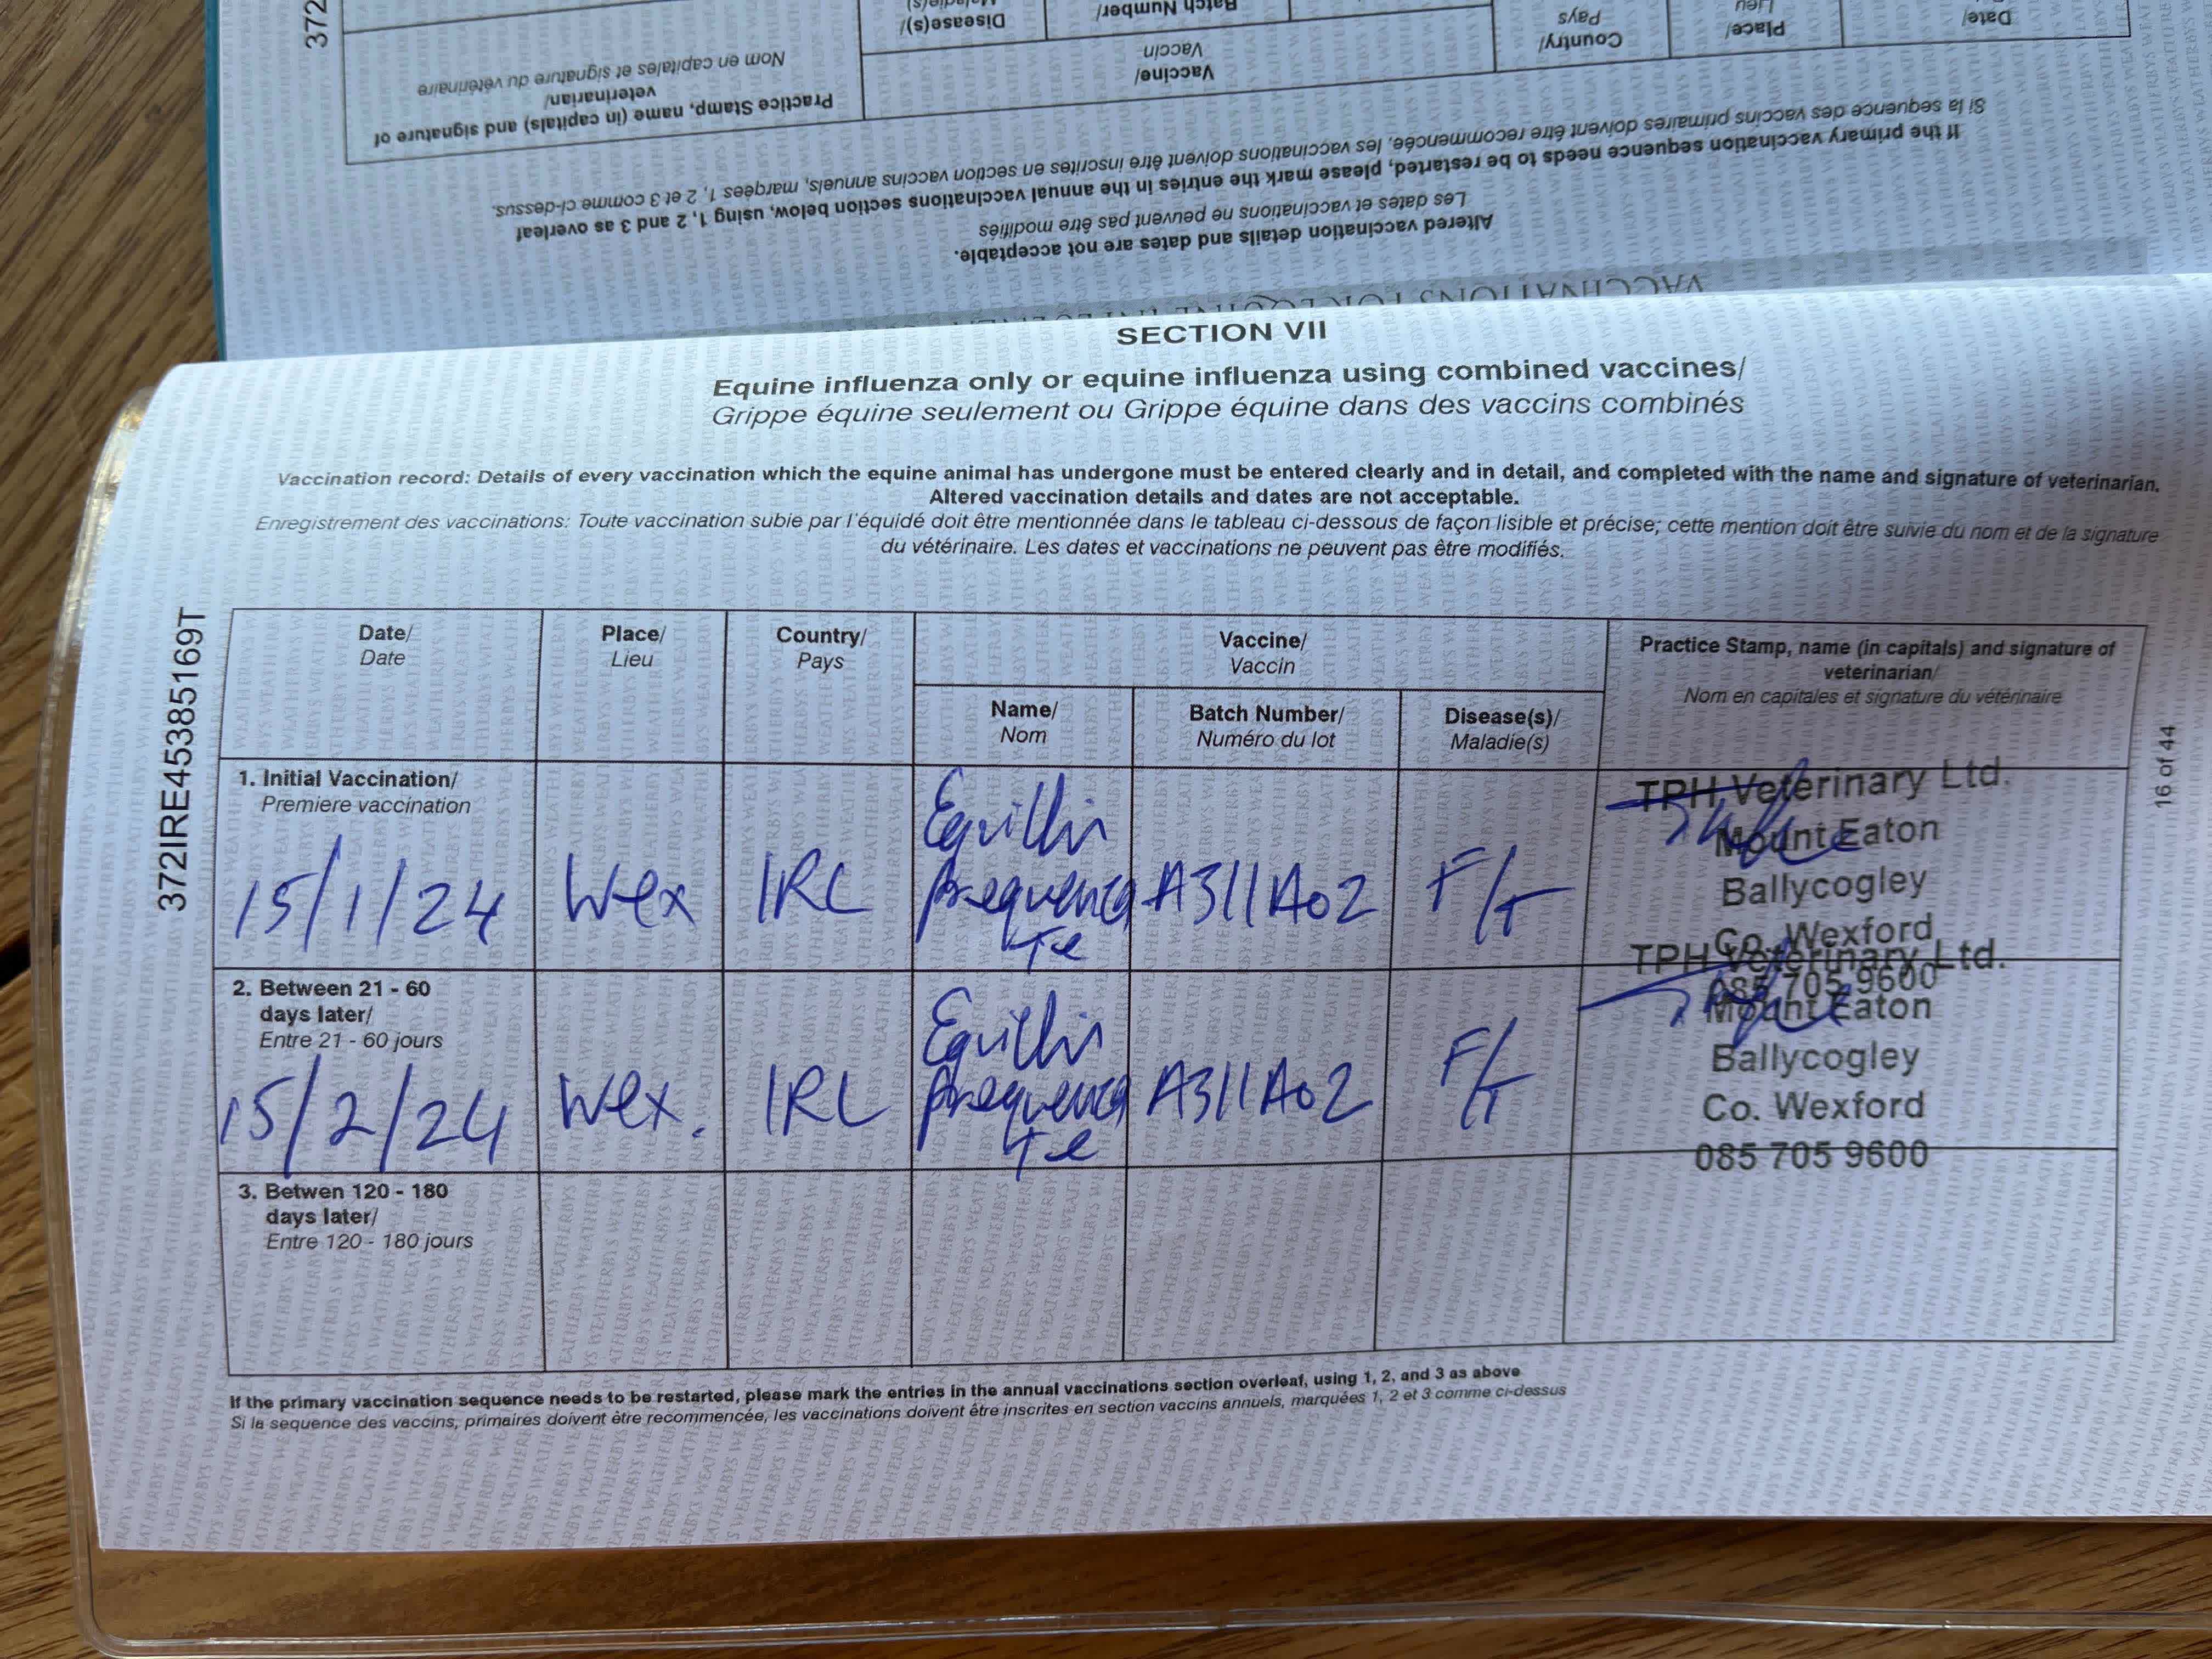 372
Practice Stamp, name (in capitals) and signature of
veterinarian/
Nom en capitales et signature du vétérinaire
Vaccine/
Vaccin
Batch Number/
Disease(s)/
Maladie(s)
Country/
Pays
Place/
Lieu
Date/
If the primary vaccination sequence needs to be restarted, please mark the entries in the annual vaccinations section below, using 1, 2 and 3 as overleaf
Si la sequence des vaccins primaires doivent être recommencée, les vaccinations doivent être inscrites en section vaccins annuels, marquées 1, 2 et 3 comme ci-dessus.
Altered vaccination details and dates are not acceptable.
Les dates et vaccinations ne peuvent pas être modifiés
VACCINATIONS FOR EQUINE INFLUENZA
SECTION VII
Equine influenza only or equine influenza using combined vaccines/
Grippe équine seulement ou Grippe équine dans des vaccins combinés
Vaccination record: Details of every vaccination which the equine animal has undergone must be entered clearly and in detail, and completed with the name and signature of veterinarian.
Altered vaccination details and dates are not acceptable.
Enregistrement des vaccinations: Toute vaccination subie par l'équidé doit être mentionnée dans le tableau ci-dessous de façon lisible et précise; cette mention doit être suivie du nom et de la signature
du vétérinaire. Les dates et vaccinations ne peuvent pas être modifiés.
372IRE45385169T
Date/
Date
Place/
Lieu
Country/
Pays
Vaccine/
Vaccin
Name/
Nom
Batch Number/
Numéro du lot
Disease(s)/
Maladie(s)
Practice Stamp, name (in capitals) and signature of
veterinarian/
Nom en capitales et signature du vétérinaire
16 of 44
1. Initial Vaccination/
Premiere vaccination
15/1/24
Wex
IRL
Te
A311A02
F/T
TPH Veterinary Ltd.
Mount Eaton
Ballycogley
Co. Wexford
085 705 9600
2. Between 21 - 60
days later/
Entre 21 - 60 jours
15/2/24
Wex.
IRL
Te
A311A02
F/T
TPH Veterinary Ltd.
Mount Eaton
Ballycogley
Co. Wexford
085 705 9600
3. Betwen 120 - 180
days later/
Entre 120 - 180 jours
If the primary vaccination sequence needs to be restarted, please mark the entries in the annual vaccinations section overleaf, using 1, 2, and 3 as above
Si la sequence des vaccins, primaires doivent être recommencée, les vaccinations doivent être inscrites en section vaccins annuels, marquées 1, 2 et 3 comme ci-dessus